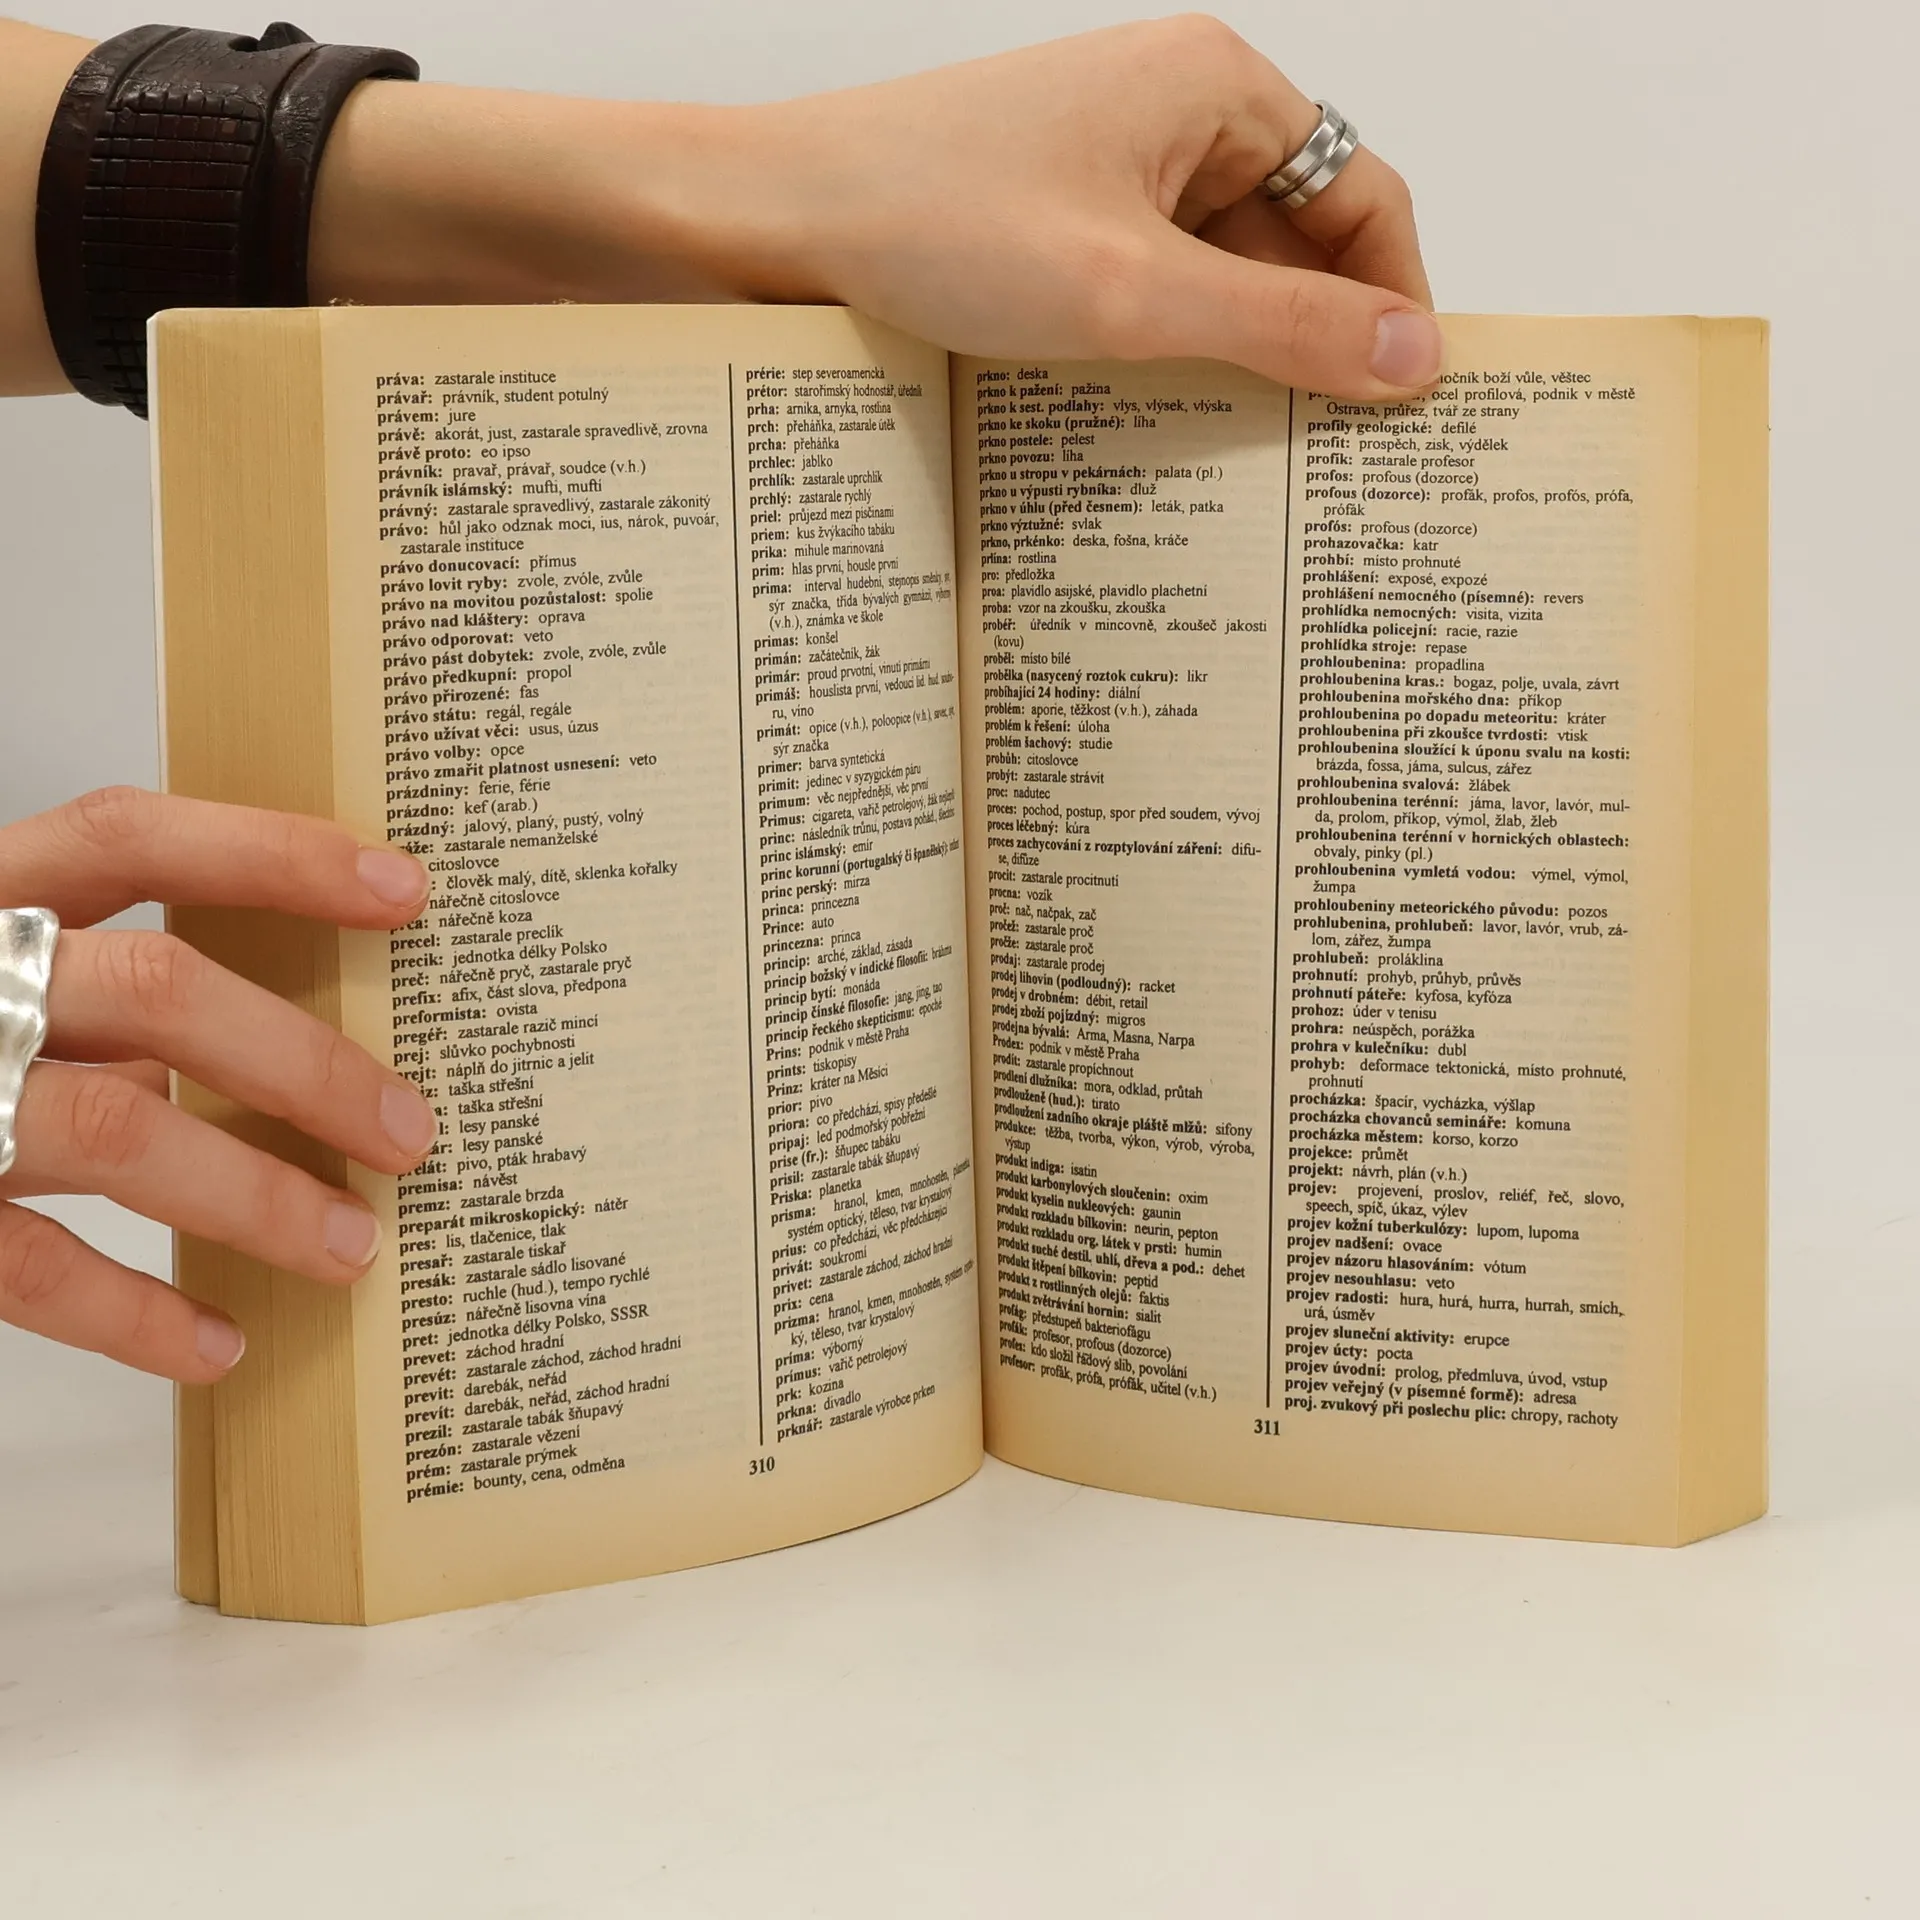 práva: zastarale instituce
právař: právník, student potulný
právem: jure
právě: akorát, just, zastarale spravedlivě, zrovna
právě proto: eo ipso
právník: pravař, právař, soudce (v.h.)
právník islámský: mufti, muftí
právný: zastarale spravedlivý, zastarale zákonitý
právo: hůl jako odznak moci, ius, nárok, puvoár,
zastarale instituce
právo donucovací: přímus
právo lovit ryby: zvole, zvóle, zvůle
právo na movitou pozůstalost: spolie
právo nad kláštery: oprava
právo odporovat: veto
právo pást dobytek: zvole, zvóle, zvůle
právo předkupní: propol
právo přirozené: fas
právo státu: regál, regále
právo užívat věci: usus, úzus
právo volby: opce
právo zmařit platnost usnesení: veto
prázdniny: ferie, férie
prázdno: kef (arab.)
prázdný: jalový, planý, pustý, volný
áže: zastarale nemanželské
citoslovce
: člověk malý, dítě, sklenka kořalky
nářečně citoslovce
ca: nářečně koza
precel: zastarale preclík
precik: jednotka délky Polsko
preč: nářečně pryč, zastarale pryč
prefix: afix, část slova, předpona
preformista: ovista
pregéř: zastarale razič mincí
prej: slůvko pochybnosti
rejt: náplň do jitrnic a jelit
iz: taška střešní
a: taška střešní
l: lesy panské
ár: lesy panské
elát: pivo, pták hrabavý
premisa: návěst
premz: zastarale brzda
preparát mikroskopický: nátěr
pres: lis, tlačenice, tlak
presař: zastarale tiskař
presák: zastarale sádlo lisované
presto: ruchle (hud.), tempo rychlé
presúz: nářečně lisovna vína
pret: jednotka délky Polsko, SSSR
prevet: záchod hradní
prevét: zastarale záchod, záchod hradní
prevít: darebák, neřád
prevít: darebák, neřád, záchod hradní
prezil: zastarale tabák šňupavý
prezón: zastarale vězení
prém: zastarale prýmek
prémie: bounty, cena, odměna
prérie: step severoamerická
prétor: starořímský hodnostář, úředník
prha: arnika, arnyka, rostlina
prch: přeháňka, zastarale útěk
prcha: přeháňka
prchlec: jablko
prchlík: zastarale uprchlík
prchlý: zastarale rychlý
priel: průjezd mezi písčinami
priem: kus žvýkacího tabáku
prika: mihule marinovaná
prim: hlas první, housle první
prima: interval hudební, stejnopis směnky,
sýr značka, třída bývalých gymnázií, výborný
(v.h.), známka ve škole
primas: konšel
primán: začátečník, žák
primár: proud prvotní, vinutí primární
primáš: houslista první, vedoucí lid. hud. soubo-
ru, víno
primát: opice (v.h.), poloopice (v.h.), savec,
sýr značka
primer: barva syntetická
primit: jedinec v syzygickém páru
primum: věc nejpřednější, věc první
Primus: cigareta, vařič petrolejový, žák nejlepší
princ: následník trůnu, postava pohád., šlechtic
princ islámský: emír
princ korunní (portugalský či španělský): infant
princ perský: mirza
princa: princezna
Prince: auto
princezna: princa
princip: arché, základ, zásada
princip božský v indické filosofii: bráhma
princip bytí: monáda
princip čínské filosofie: jang, jing, tao
princip řeckého skepticismu: epoché
Prins: podnik v městě Praha
prints: tiskopisy
Prinz: kráter na Měsíci
prior: pivo
priora: co předchází, spisy předešlé
pripaj: led podmořský pobřežní
prise (fr.): šňupec tabáku
prisil: zastarale tabák šňupavý
Priska: planetka
prisma: hranol, kmen, mnohostěn, planetka
systém optický, těleso, tvar krystalový
prius: co předchází, věc předcházející
privát: soukromí
privet: zastarale záchod, záchod hradní
prix: cena
prizma: hranol, kmen, mnohostěn, systém optic-
ký, těleso, tvar krystalový
príma: výborný
prímus: vařič petrolejový
prk: kozina
prkna: divadlo
prknář: zastarale výrobce prken
310
prkno: deska
prkno k pažení: pažina
prkno k sest. podlahy: vlys, vlýsek, vlýska
prkno ke skoku (pružné): líha
prkno postele: pelest
prkno povozu: líha
prkno u stropu v pekárnách: palata (pl.)
prkno u výpusti rybníka: dluž
prkno v úhlu (před česnem): leták, patka
prkno výztužné: svlak
prkno, prkénko: deska, fošna, kráče
prlina: rostlina
pro: předložka
proa: plavidlo asijské, plavidlo plachetní
proba: vzor na zkoušku, zkouška
probéř: úředník v mincovně, zkoušeč jakosti
(kovu)
proběl: místo bílé
probělka (nasycený roztok cukru): likr
probíhající 24 hodiny: diální
problém: aporie, těžkost (v.h.), záhada
problém k řešení: úloha
problém šachový: studie
probůh: citoslovce
probýt: zastarale strávit
proc: nadutec
proces: pochod, postup, spor před soudem, vývoj
proces léčebný: kúra
proces zachycování z rozptylování záření: difu-
se, difúze
procit: zastarale procitnutí
procna: vozík
proč: nač, načpak, zač
pročež: zastarale proč
pročže: zastarale proč
prodaj: zastarale prodej
prodej lihovin (podloudný): racket
prodej v drobném: débit, retail
prodej zboží pojízdný: migros
prodejna bývalá: Arma, Masna, Narpa
Prodex: podnik v městě Praha
prodít: zastarale propíchnout
prodlení dlužníka: mora, odklad, průtah
prodlouženě (hud.): tirato
prodloužení zadního okraje pláště mlžů: sifony
produkce: těžba, tvorba, výkon, výrob, výroba,
výstup
produkt indiga: isatin
produkt karbonylových sloučenin: oxim
produkt kyselin nukleových: gaunin
produkt rozkladu bílkovin: neurin, pepton
produkt rozkladu org. látek v prsti: humin
produkt suché destil. uhlí, dřeva a pod.: dehet
produkt štěpení bílkovin: peptid
produkt z rostlinných olejů: faktis
produkt zvětrávání hornin: sialit
profág: předstupeň bakteriofágu
profák: profesor, profous (dozorce)
profes: kdo složil řádový slib, povolání
profesor: profák, prófa, prófák, učitel (v.h.)
311
očník boží vůle, věštec
ocel profilová, podnik v městě
Ostrava, průřez, tvář ze strany
profily geologické: defilé
profit: prospěch, zisk, výdělek
profík: zastarale profesor
profos: profous (dozorce)
profous (dozorce): profák, profos, profós, prófa,
prófák
profós: profous (dozorce)
prohazovačka: katr
prohbí: místo prohnuté
prohlášení: exposé, expozé
prohlášení nemocného (písemné): revers
prohlídka nemocných: visita, vizita
prohlídka policejní: racie, razie
prohlídka stroje: repase
prohloubenina: propadlina
prohloubenina kras.: bogaz, polje, uvala, závrt
prohloubenina mořského dna: příkop
prohloubenina po dopadu meteoritu: kráter
prohloubenina při zkoušce tvrdosti: vtisk
prohloubenina sloužící k úponu svalu na kosti:
brázda, fossa, jáma, sulcus, zářez
prohloubenina svalová: žlábek
prohloubenina terénní: jáma, lavor, lavór, mul-
da, prolom, příkop, výmol, žlab, žleb
prohloubenina terénní v hornických oblastech:
obvaly, pinky (pl.)
prohloubenina vymletá vodou: výmel, výmol,
žumpa
prohloubeniny meteorického původu: pozos
prohlubenina, prohlubeň: lavor, lavór, vrub, zá-
lom, zářez, žumpa
prohlubeň: proláklina
prohnutí: prohyb, průhyb, průvěs
prohnutí páteře: kyfosa, kyfóza
prohoz: úder v tenisu
prohra: neúspěch, porážka
prohra v kulečníku: dubl
prohyb: deformace tektonická, místo prohnuté,
prohnutí
procházka: špacír, vycházka, výšlap
procházka chovanců semináře: komuna
procházka městem: korso, korzo
projekce: průmět
projekt: návrh, plán (v.h.)
projev: projevení, proslov, reliéf, řeč, slovo,
speech, spíč, úkaz, výlev
projev kožní tuberkulózy: lupom, lupoma
projev nadšení: ovace
projev názoru hlasováním: vótum
projev nesouhlasu: veto
projev radosti: hura, hurá, hurra, hurrah, smích,
urá, úsměv
projev sluneční aktivity: erupce
projev úcty: pocta
projev úvodní: prolog, předmluva, úvod, vstup
projev veřejný (v písemné formě): adresa
proj. zvukový při poslechu plic: chropy, rachoty